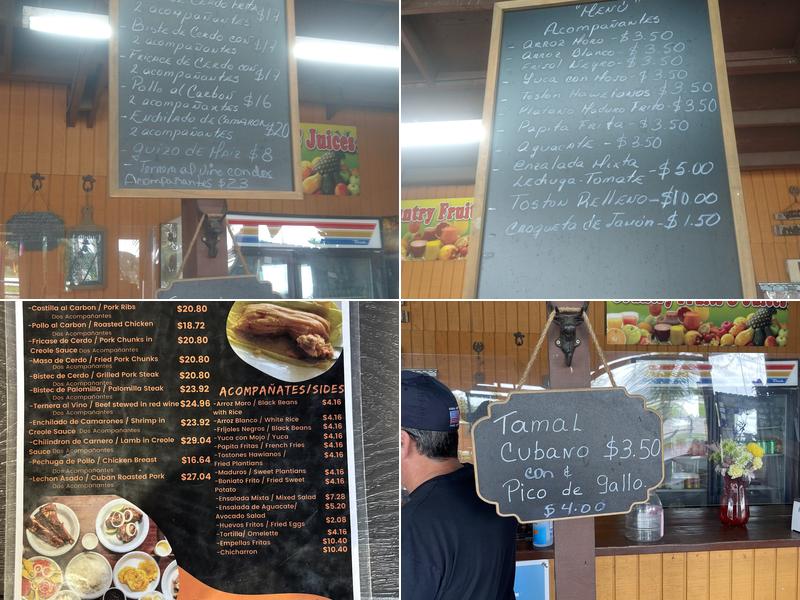 de Cerdo Frita
2 acompañantes $17
- Biste de Cerdo con $17
2 acompañantes
- Fricase de Cerdo con $17
2 acompañantes
- Pollo al Carbon $16
2 acompañantes
- Enchilado de Camaron $20
2 acompañantes
- Guizo de Maiz $8
- Ternera al vino con dos
Acompañantes $23
Juices
"MENÚ"
Acompañantes
- Arroz Moro - $3.50
- Arroz Blanco - $3.50
- Frizol Negro - $3.50
- Yuca con Mojo - $3.50
- Toston Haweianos $3.50
- Platano Maduro Frito - $3.50
- Papita Frita - $3.50
- Aguacate - $3.50
- Ensalada Mixta
Lechuga-Tomate - $5.00
- Toston Relleno - $10.00
- Croqueta de Jamón - $1.50
ntry Fruit
-Costilla al Carbon / Pork Ribs $20.80
Dos Acompañantes
-Pollo al Carbon / Roasted Chicken $18.72
Dos Acompañantes
-Fricase de Cerdo / Pork Chunks in $20.80
Creole Sauce Dos Acompañantes
-Masa de Cerdo / Fried Pork Chunks $20.80
Dos Acompañantes
-Bistec de Cerdo / Grilled Pork Steak $20.80
Dos Acompañantes
-Bistec de Palomilla / Palomilla Steak $23.92
Dos Acompañantes
-Ternera al Vino / Beef stewed in red wine $24.96
Dos Acompañantes
-Enchilado de Camarones / Shrimp in $23.92
Creole Sauce Dos Acompañantes
-Chilindron de Carnero / Lamb in Creole $29.04
Sauce Dos Acompañantes
-Pechuga de Pollo / Chicken Breast $16.64
Dos Acompañantes
-Lechon Asado / Cuban Roasted Pork $27.04
Dos Acompañantes
ACOMPAÑATES/SIDES
-Arroz Moro / Black Beans $4.16
with Rice
-Arroz Blanco / White Rice $4.16
-Frijoles Negros / Black Beans $4.16
-Yuca con Mojo / Yuca $4.16
-Papitas Fritas / French Fries $4.16
-Tostones Hawaiano / $4.16
Fried Plantains
-Maduros / Sweet Plantains $4.16
-Boniato Frito / Fried Sweet $4.16
Potato
-Ensalada Mixta / Mixed Salad $7.28
-Ensalada de Aguacate/ $5.20
Avocado Salad
-Huevos Fritos / Fried Eggs $2.08
-Tortilla/ Omelette $4.16
-Empellas Fritas $10.40
-Chicharron $10.40
Tamal
Cubano $3.50
con
Pico de gallo.
$4.00